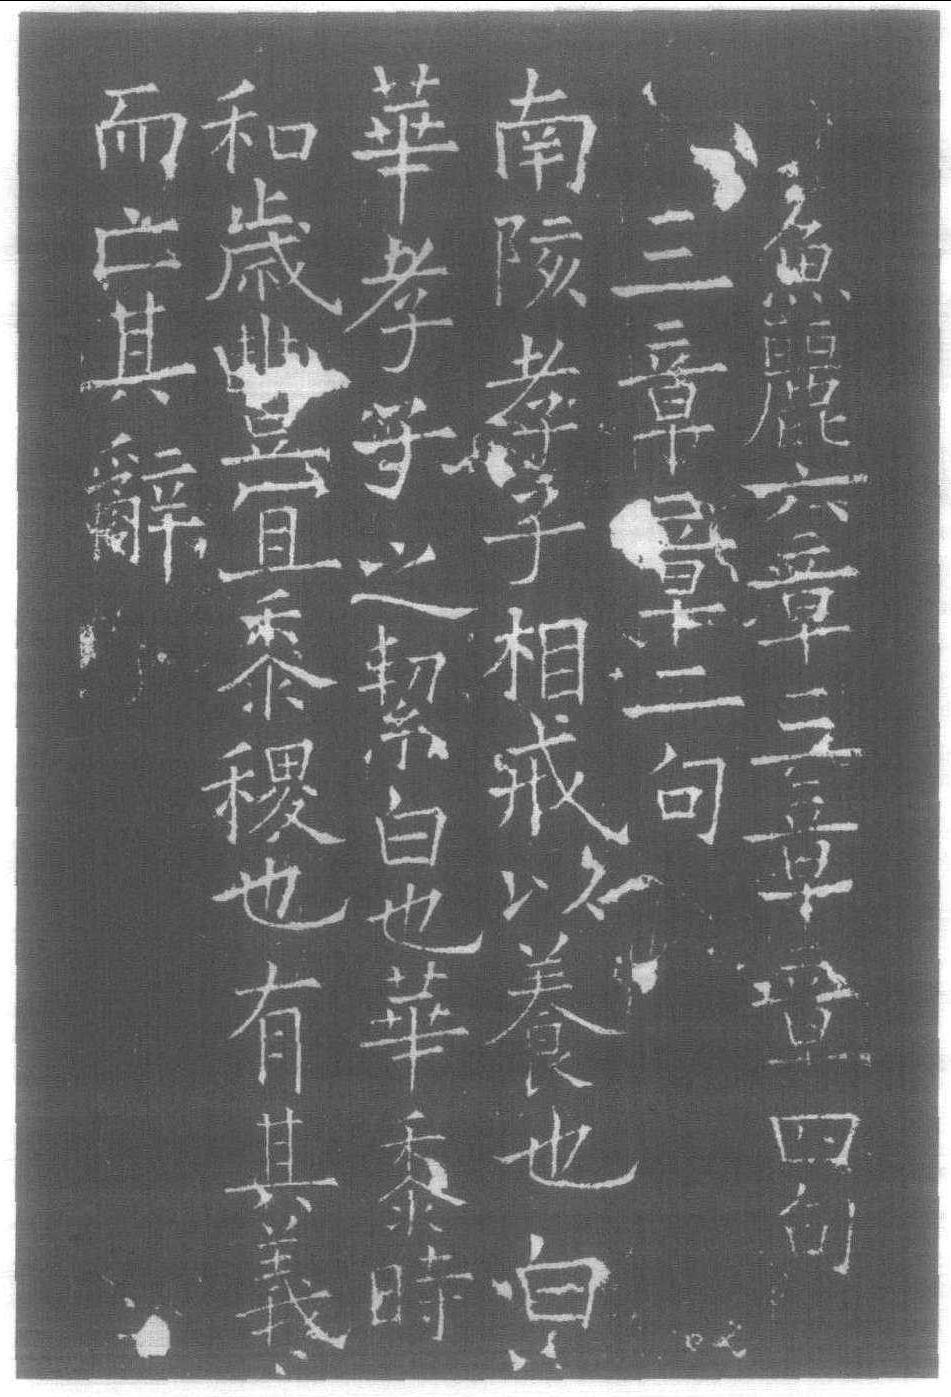 魚麗六章三章章四句
三章章二句
南陔孝子相戒以養也白
華孝子之絜白也華黍時
和歳豐宜黍稷也有其義
而亡其辭